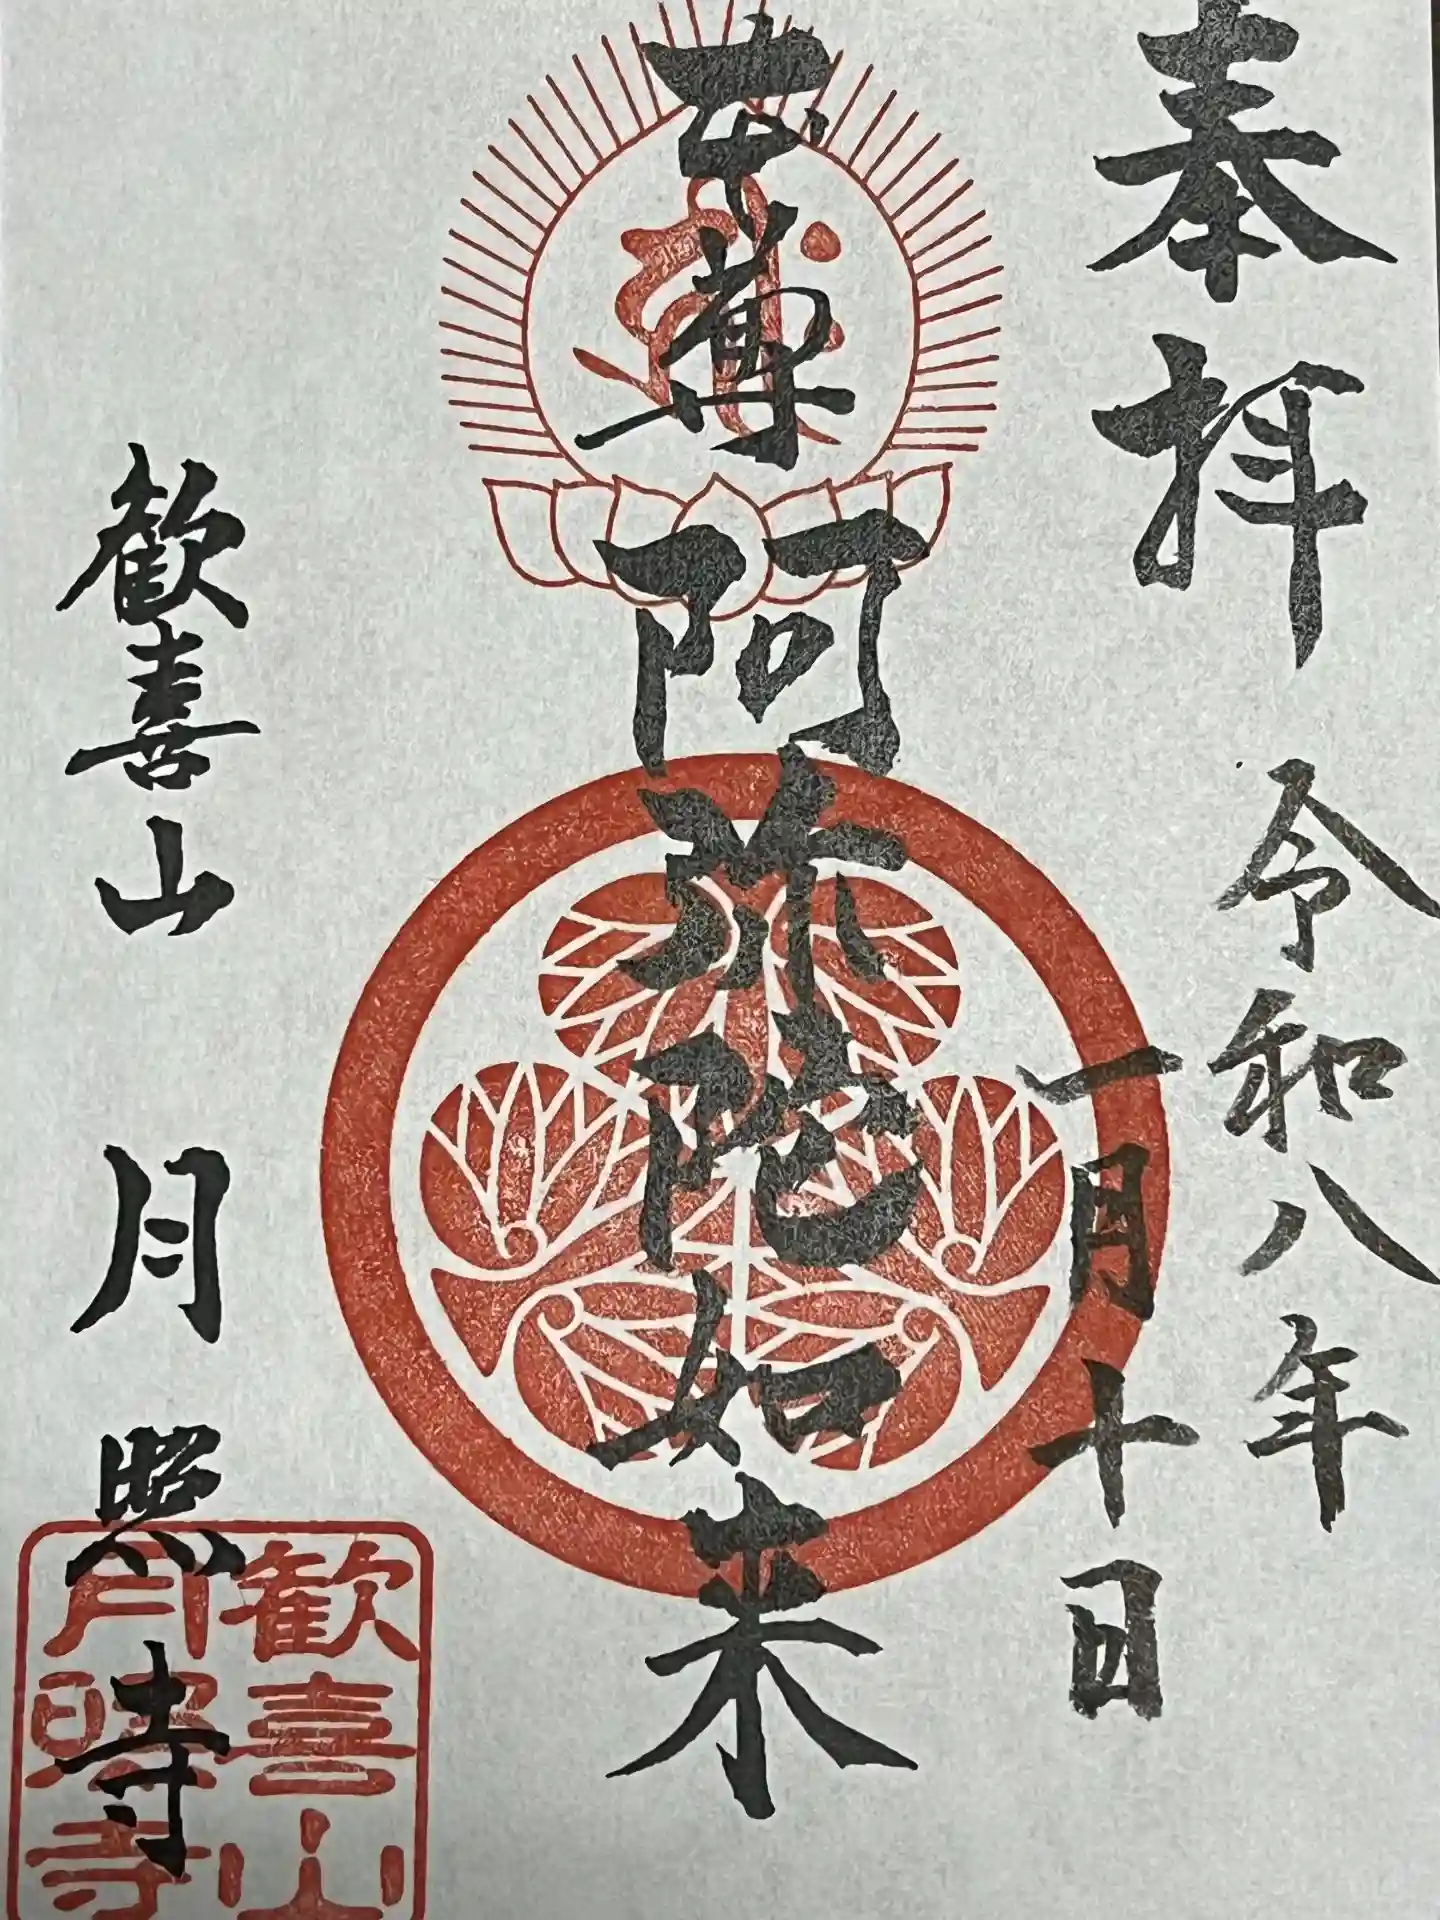 奉拝
令和八年
一月十日
本尊 阿弥陀如来
歓喜山 月照寺
歓喜山
月照寺